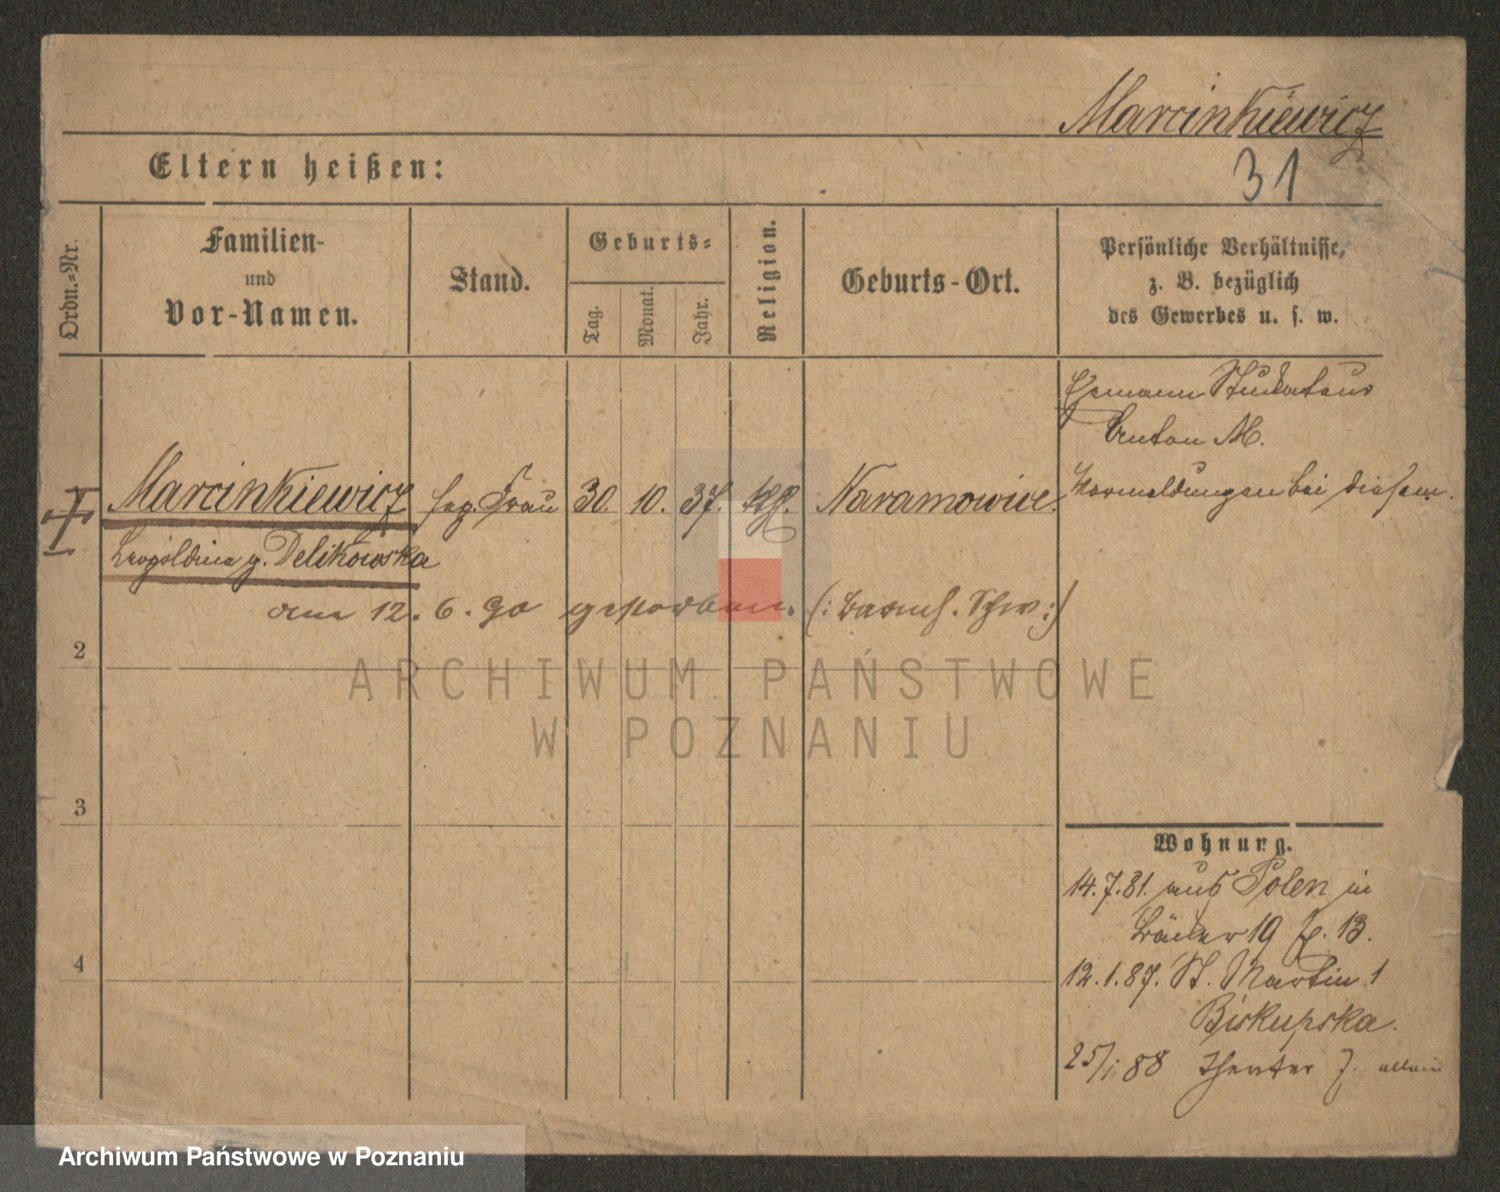 Marcinkiewicz
Eltern heißen:
31
Ordn.=Nr.
Familien-
und
Vor-Namen.
Stand.
Geburts=
Tag.
Monat.
Jahr.
Religion.
Geburts-Ort.
Persönliche Verhältnisse,
z. B. bezüglich
des Gewerbes u. s. w.
Ehemann Stukateur
Anton M.
Vormeldungen bei diesem.
Marcinkiewicz sep. Frau 30. 10. 37. kth. Naramowice.
Leopoldine g. Delikowska
am 12. 6. 90 gestorben. (: :)
2
3
4
Wohnung.
14.7.81. aus Polen in
Bäcker 19 b. 13.
12.1.87. St. Martin 1
Biskupska.
25/1 88 Theater 7. allein
ARCHIWUM PAŃSTWOWE
W POZNANIU
Archiwum Państwowe w Poznaniu